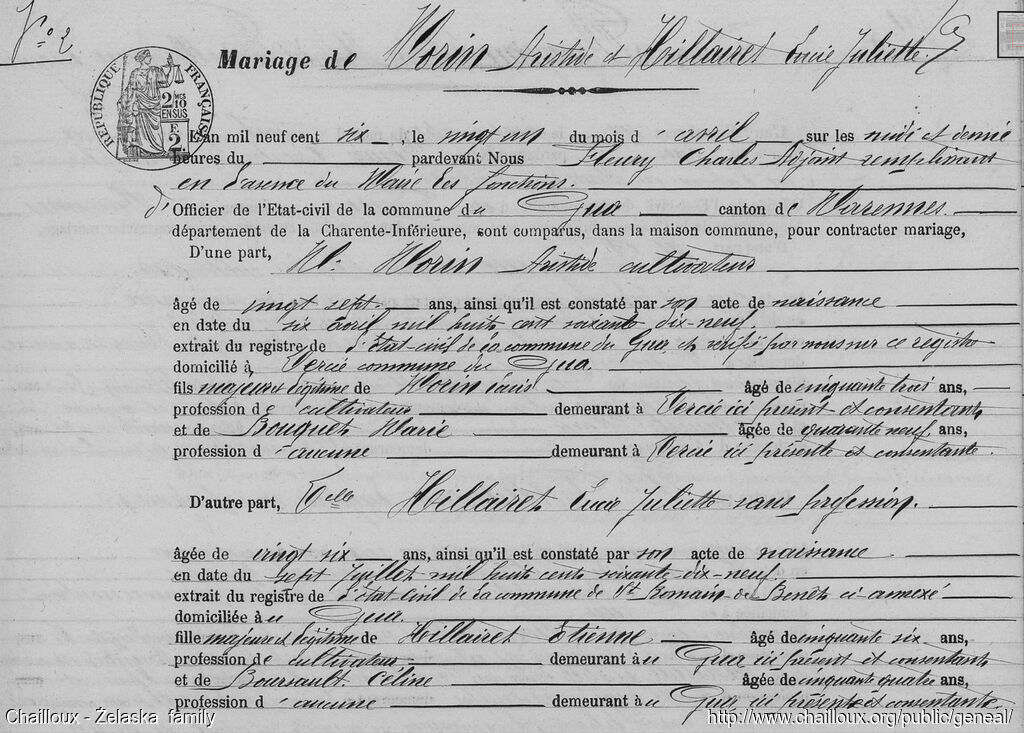 N° 2
Mariage de Morin Aristide et Hillairet Lucie Juliette
RÉPUBLIQUE FRANÇAISE
2/10 EN SUS
2
L'an mil neuf cent six, le vingt un du mois d'avril sur les midi et demie
heures du pardevant Nous Fleury Charles Adjoint remplissant
en l'absence du Maire les fonctions
d'Officier de l'Etat-civil de la commune du Gua canton de Marennes
département de la Charente-Inférieure, sont comparus, dans la maison commune, pour contracter mariage,
D'une part, Mr Morin Aristide cultivateur
âgé de vingt sept ans, ainsi qu'il est constaté par son acte de naissance
en date du six avril mil huit cent soixante dix-neuf
extrait du registre de l'état-civil de la commune du Gua et vérifié par nous sur ce registre
domicilié à Dercie commune du Gua.
fils majeur et légitime de Morin Louis âgé de cinquante trois ans,
profession de cultivateur demeurant à Dercie ici présent et consentant
et de Bouquet Marie âgée de quarante neuf ans,
profession d'aucune demeurant à Dercie ici présente et consentante.
D'autre part, Delle Hillairet Lucie Juliette sans profession.
âgée de vingt six ans, ainsi qu'il est constaté par son acte de naissance
en date du sept Juillet mil huit cent soixante dix-neuf
extrait du registre de l'état civil de la commune de St Romain-de-Benêt ci-annexé
domiciliée au Gua.
fille majeure et légitime de Hillairet Etienne âgé de cinquante six ans,
profession de cultivateur demeurant au Gua ici présent et consentant
et de Boursault Céline âgée de cinquante quatre ans,
profession d'aucune demeurant au Gua ici présente et consentante.
Chailloux - Żelaska family
http://www.chailloux.org/public/geneal/